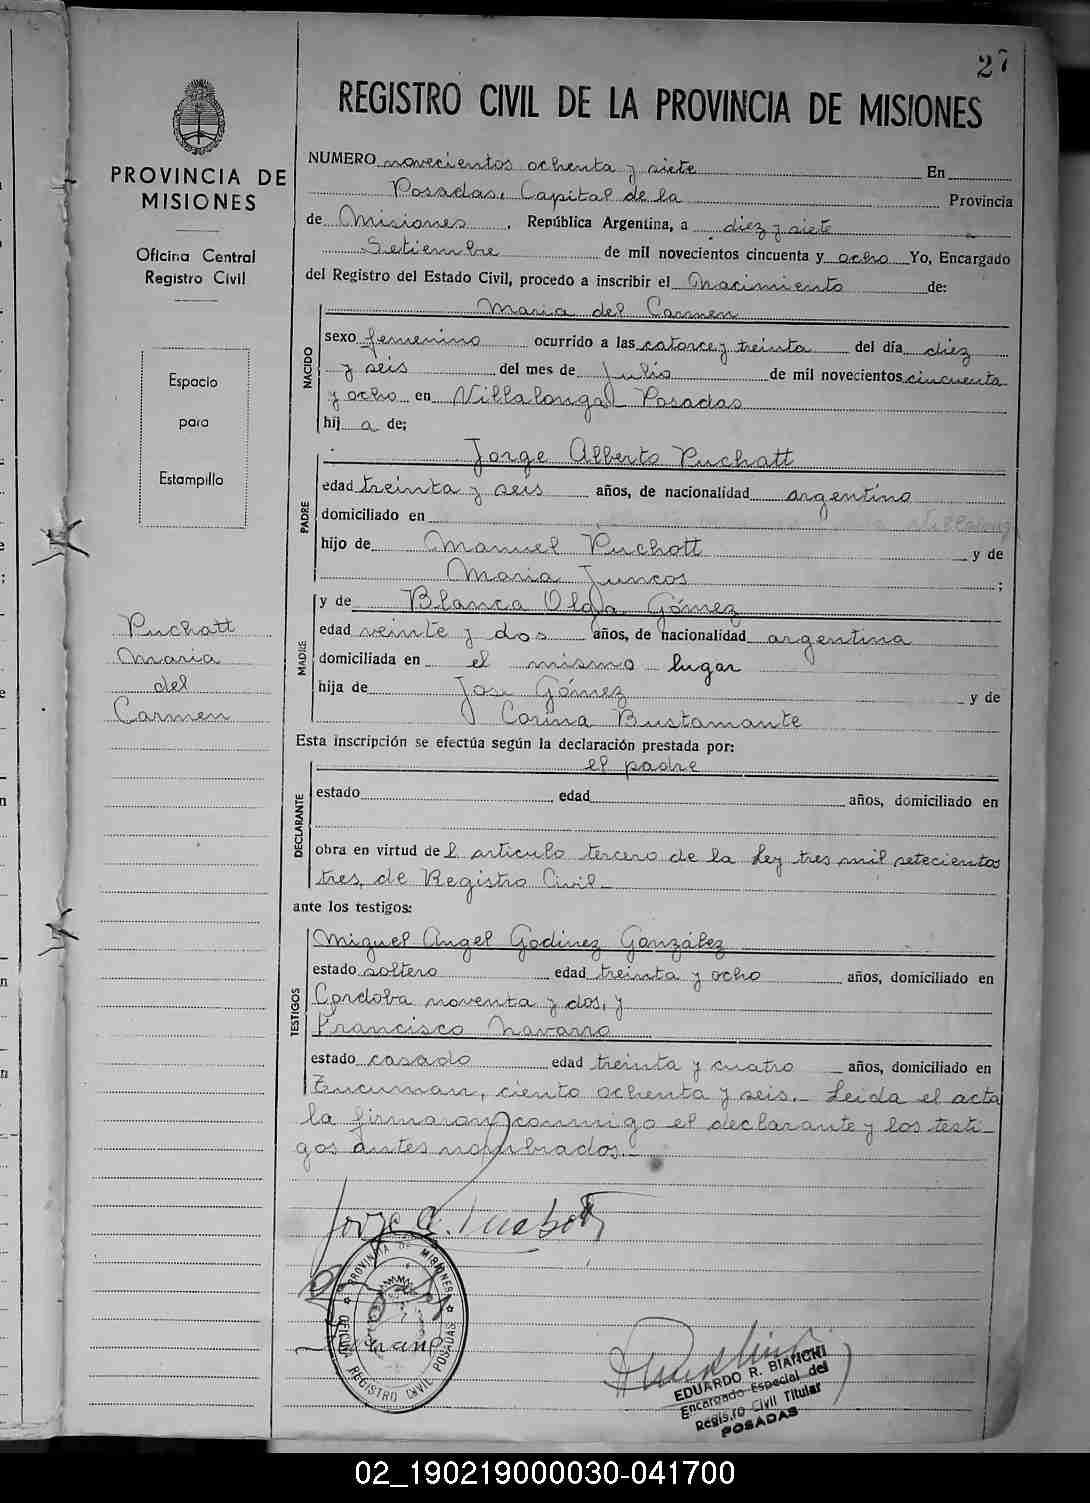 27
REGISTRO CIVIL DE LA PROVINCIA DE MISIONES
PROVINCIA DE
MISIONES
Oficina Central
Registro Civil
Espacio
para
Estampillo
Puchatt
Maria
del
Carmen
NUMERO novecientos ochenta y siete En
Posadas, Capital de la Provincia
de Misiones, República Argentina, a diez y siete
Setiembre de mil novecientos cincuenta y ocho Yo, Encargado
del Registro del Estado Civil, procedo a inscribir el Nacimiento de:
NACIDO
Maria del Carmen
sexo femenino ocurrido a las catorce y treinta del día diez
y seis del mes de Julio de mil novecientos cincuenta
y ocho en Villalonga Posadas
hij a de;
PADRE
Jorge Alberto Puchatt
edad treinta y seis años, de nacionalidad argentino
domiciliado en
hijo de Manuel Puchatt y de
Maria Juncos ;
MADRE
y de Blanca Olga Gómez
edad veinte y dos años, de nacionalidad argentina
domiciliada en el mismo lugar
hija de Jose Gómez y de
Corina Bustamante
Esta inscripción se efectúa según la declaración prestada por:
DECLARANTE
el padre
estado edad años, domiciliado en
obra en virtud de l articulo tercero de la Ley tres mil setecientos
tres, de Registro Civil.
ante los testigos:
TESTIGOS
Miguel Angel Godinez González
estado soltero edad treinta y ocho años, domiciliado en
Cordoba noventa y dos, y
Francisco Navarro
estado casado edad treinta y cuatro años, domiciliado en
Tucuman, ciento ochenta y seis. Leida el acta
la firmaron conmigo el declarante y los testi-
gos antes nombrados.
Jorge A. Puchatt
PROVINCIA DE MISIONES
OFICINA REGISTRO CIVIL POSADAS
EDUARDO R. BIANCHI
Encargado Especial del
Registro Civil Titular
POSADAS
02_190219000030-041700